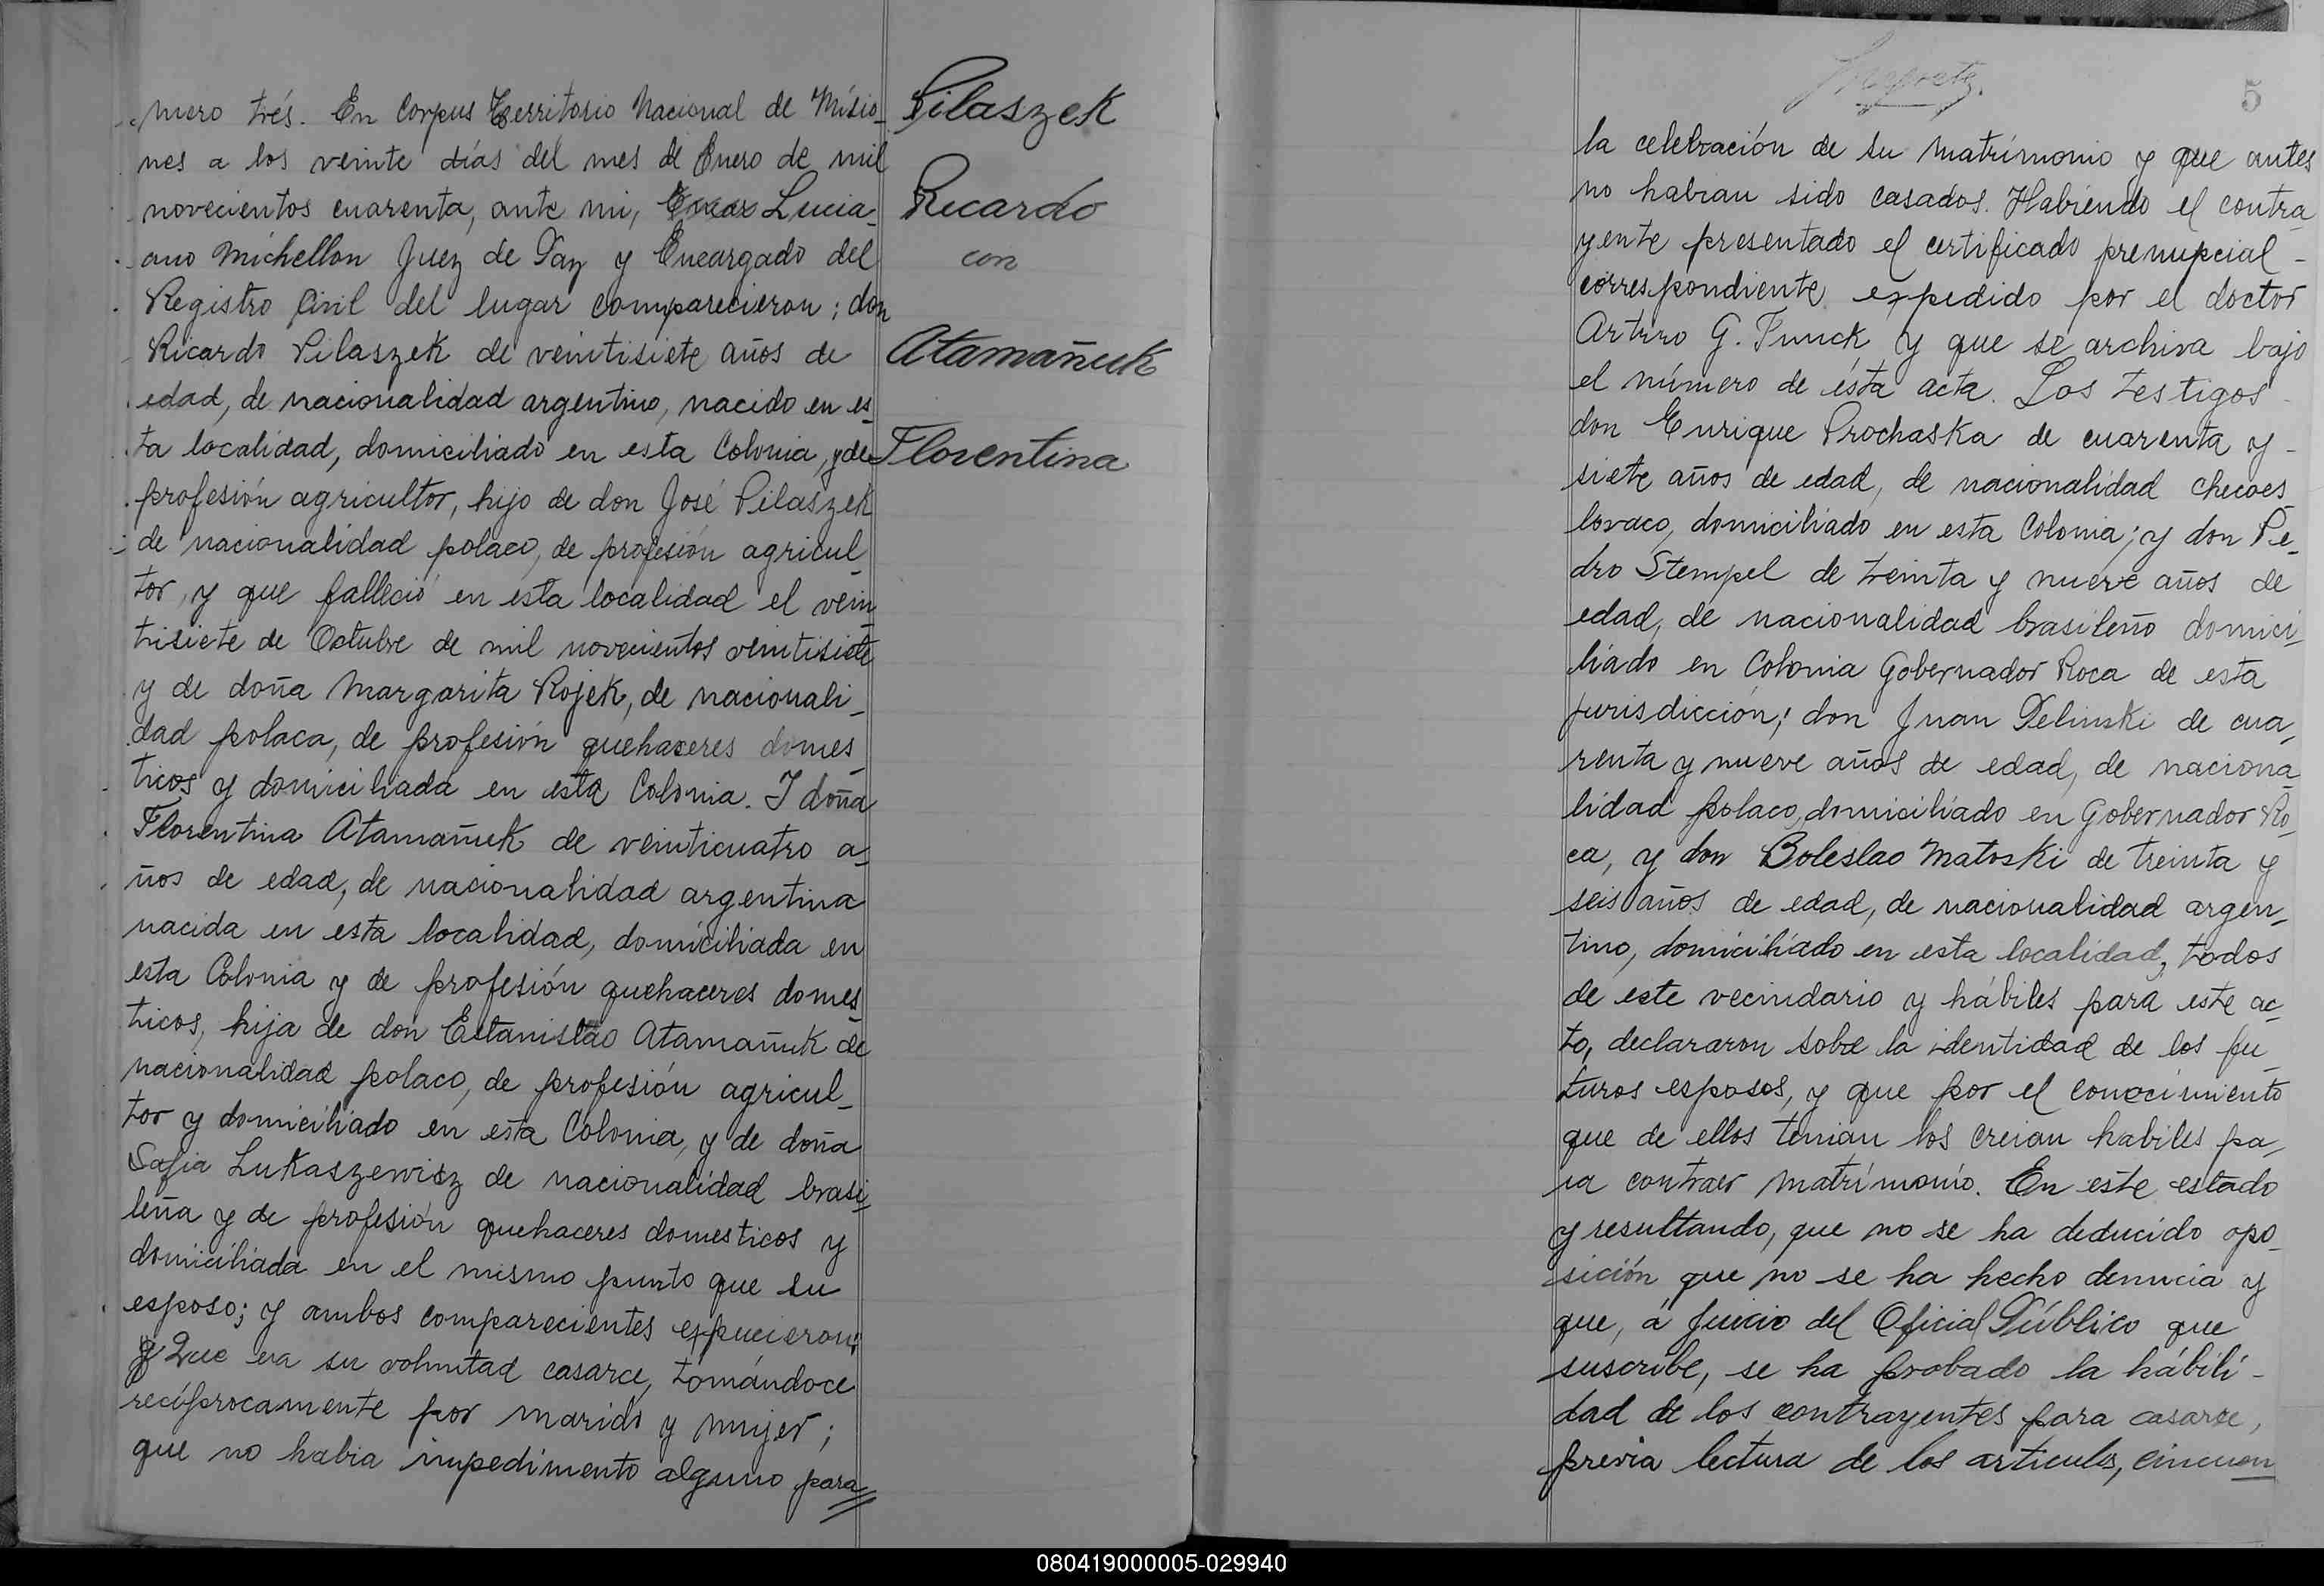 mero trés. En Corpus Territorio Nacional de Misio_
nes a los veinte días del mes de Enero de mil
novecientos cuarenta, ante mi, Lucia_
ano Michellon Juez de Paz y Encargado del
Registro Civil del lugar comparecieron; don
Ricardo Pilaszek de veintisiete años de
edad, de nacionalidad argentino, nacido en es
ta localidad, domiciliado en esta Colonia, y de
profesión agricultor, hijo de don José Pilaszek
de nacionalidad polaco, de profesión agricul_
tor, y que falleció en esta localidad el vein_
tisiete de Octubre de mil novecientos veintisiete
y de doña Margarita Rojek, de nacionali_
dad polaca, de profesión quehaceres domes_
ticos y domiciliada en esta Colonia. I doña
Florentina Atamañuk de veinticuatro a_
ños de edad, de nacionalidad argentina
nacida en esta localidad, domiciliada en
esta Colonia y de profesión quehaceres domes_
ticos, hija de don Estanislao Atamañuk de
nacionalidad polaco, de profesión agricul_
tor y domiciliado en esta Colonia, y de doña
Safia Lukaszewisz de nacionalidad brasi_
leña y de profesión quehaceres domesticos y
domiciliada en el mismo punto que su
esposo; y ambos comparecientes expucieron:
Que era su voluntad casarce, tomándoce
recíprocamente por marido y mujer;
que no habia impedimento alguno para
Pilaszek
Ricardo
con
Atamañuk
Florentina
5
la celebración de su matrimonio y que antes
no habian sido casados. Habiendo el contra_
yente presentado el certificado prenupcial -
correspondiente expedido por el doctor
Arturo G. Funck y que se archiva bajo
el número de ésta acta. Los testigos
don Enrique Prochaska de cuarenta y -
siete años de edad, de nacionalidad checoes_
lovaco, domiciliado en esta Colonia; y don Pe_
dro Stempel de treinta y nueve años de
edad, de nacionalidad brasileño domici_
liado en Colonia Gobernador Roca de esta
jurisdicción; don Juan Zelinski de cua_
renta y nueve años de edad, de naciona_
lidad polaco, domiciliado en Gobernador Ro_
ca, y don Boleslao Matoski de treinta y
seis años de edad, de nacionalidad argen_
tino, domiciliado en esta localidad, todos
de este vecindario y hábiles para este ac_
to, declararon sobre la identidad de los fu_
turos esposos, y que por el conocimiento
que de ellos tenian los creian habiles pa_
ra contraer matrimonio. En este estado
y resultando, que no se ha deducido opo_
sición que no se ha hecho denucia y
que, á juicio del Oficial Público que
suscribe, se ha probado la hábili -
dad de los contrayentes para casarse,
previa lectura de los articulos, cincuen
080419000005-029940